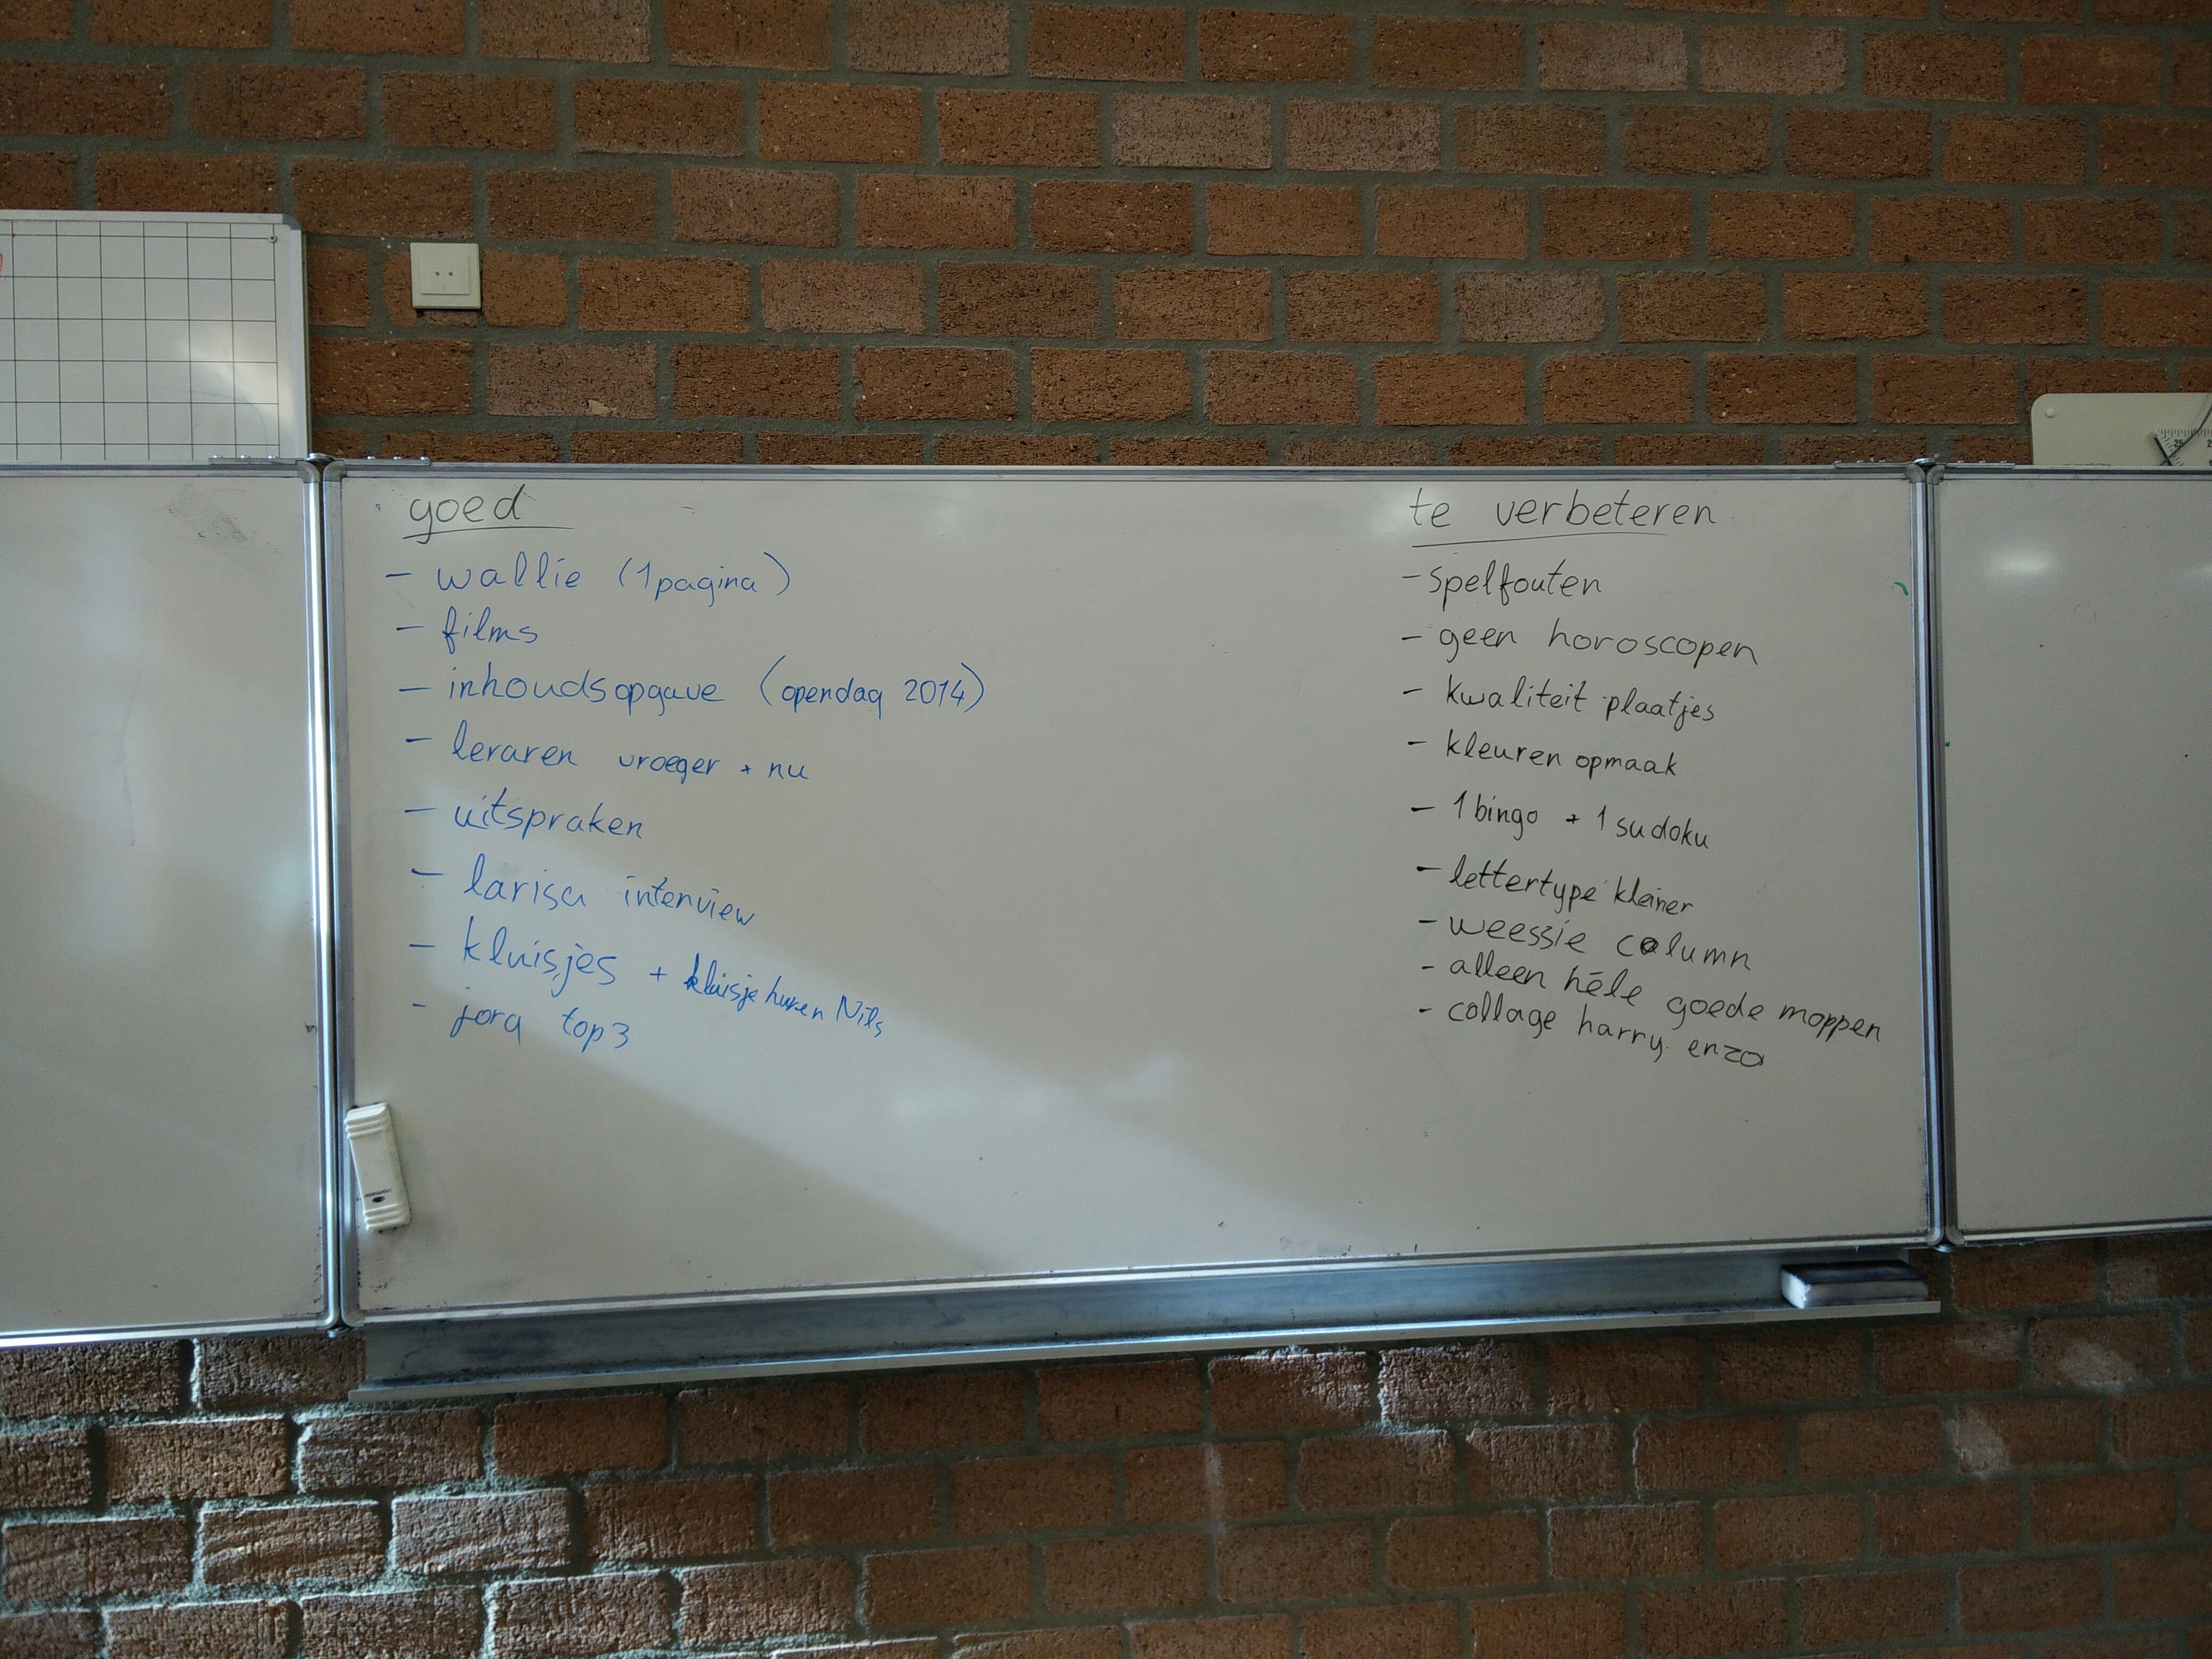 goed
- wallie (1 pagina)
- films
- inhoudsopgave (opendag 2014)
- leraren vroeger + nu
- uitspraken
- larisa interview
- kluisjes + kluisje huren Nils
- jorq top 3
te verbeteren
- spelfouten
- geen horoscopen
- kwaliteit plaatjes
- kleuren opmaak
- 1 bingo + 1 sudoku
- lettertype kleiner
- weessie column
- alleen héle goede moppen
- collage harry enzo
25